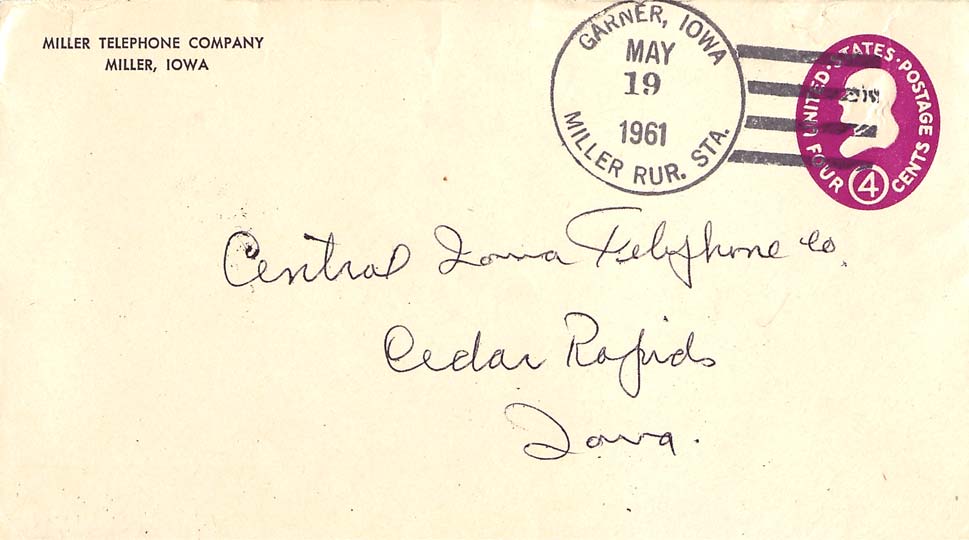 MILLER TELEPHONE COMPANY
MILLER, IOWA
GARNER, IOWA
MAY
19
1961
MILLER RUR. STA.
UNITED · STATES · POSTAGE
FOUR 4 CENTS
Central Iowa Telephone Co.
Cedar Rapids
Iowa.